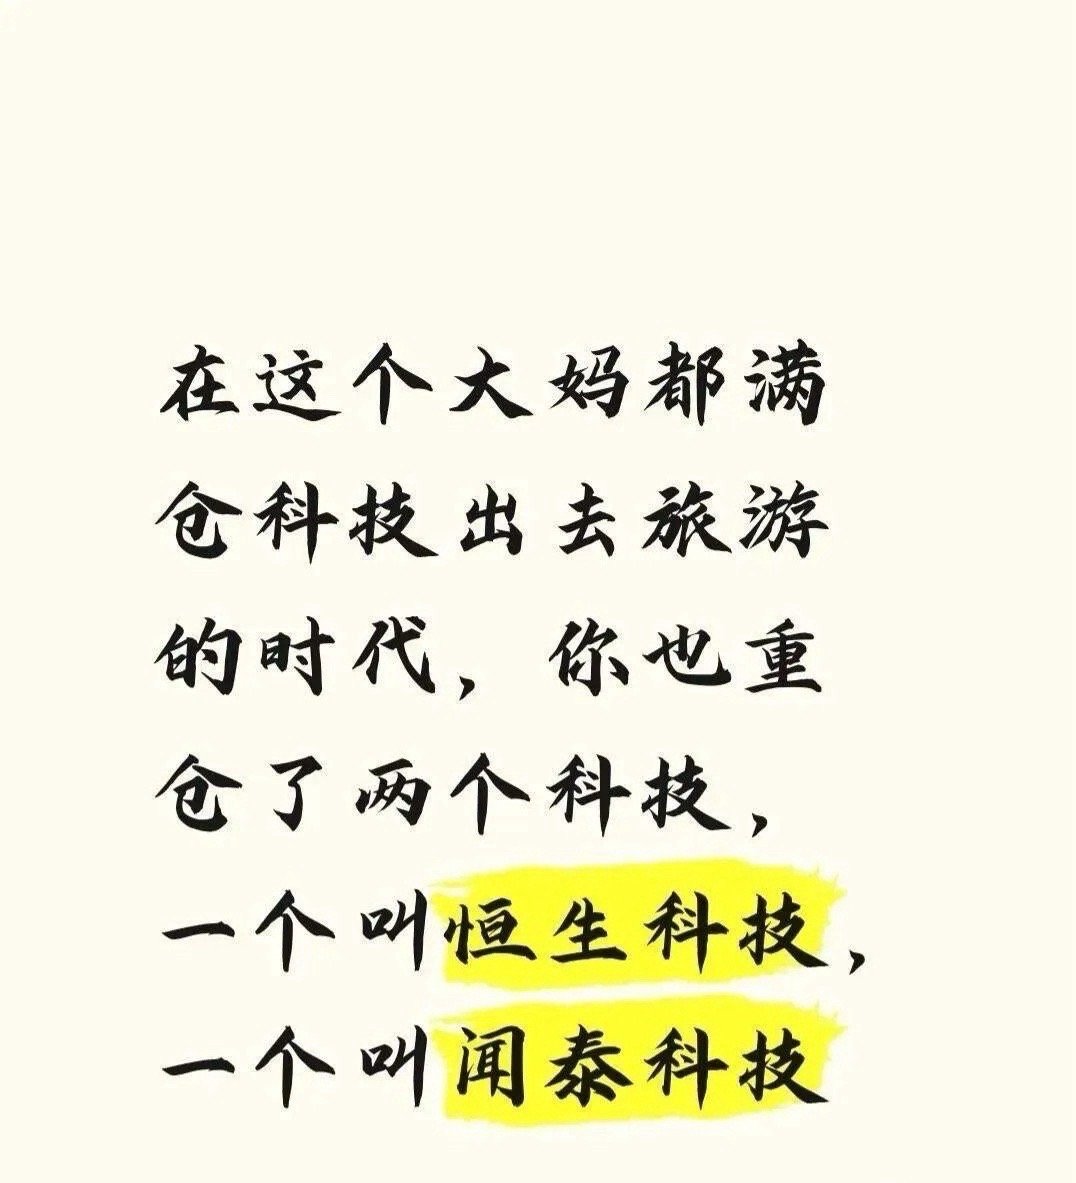 在这个大妈都满
仓科技出去旅游
的时代，你也重
仓了两个科技，
一个叫恒生科技，
一个叫闻泰科技